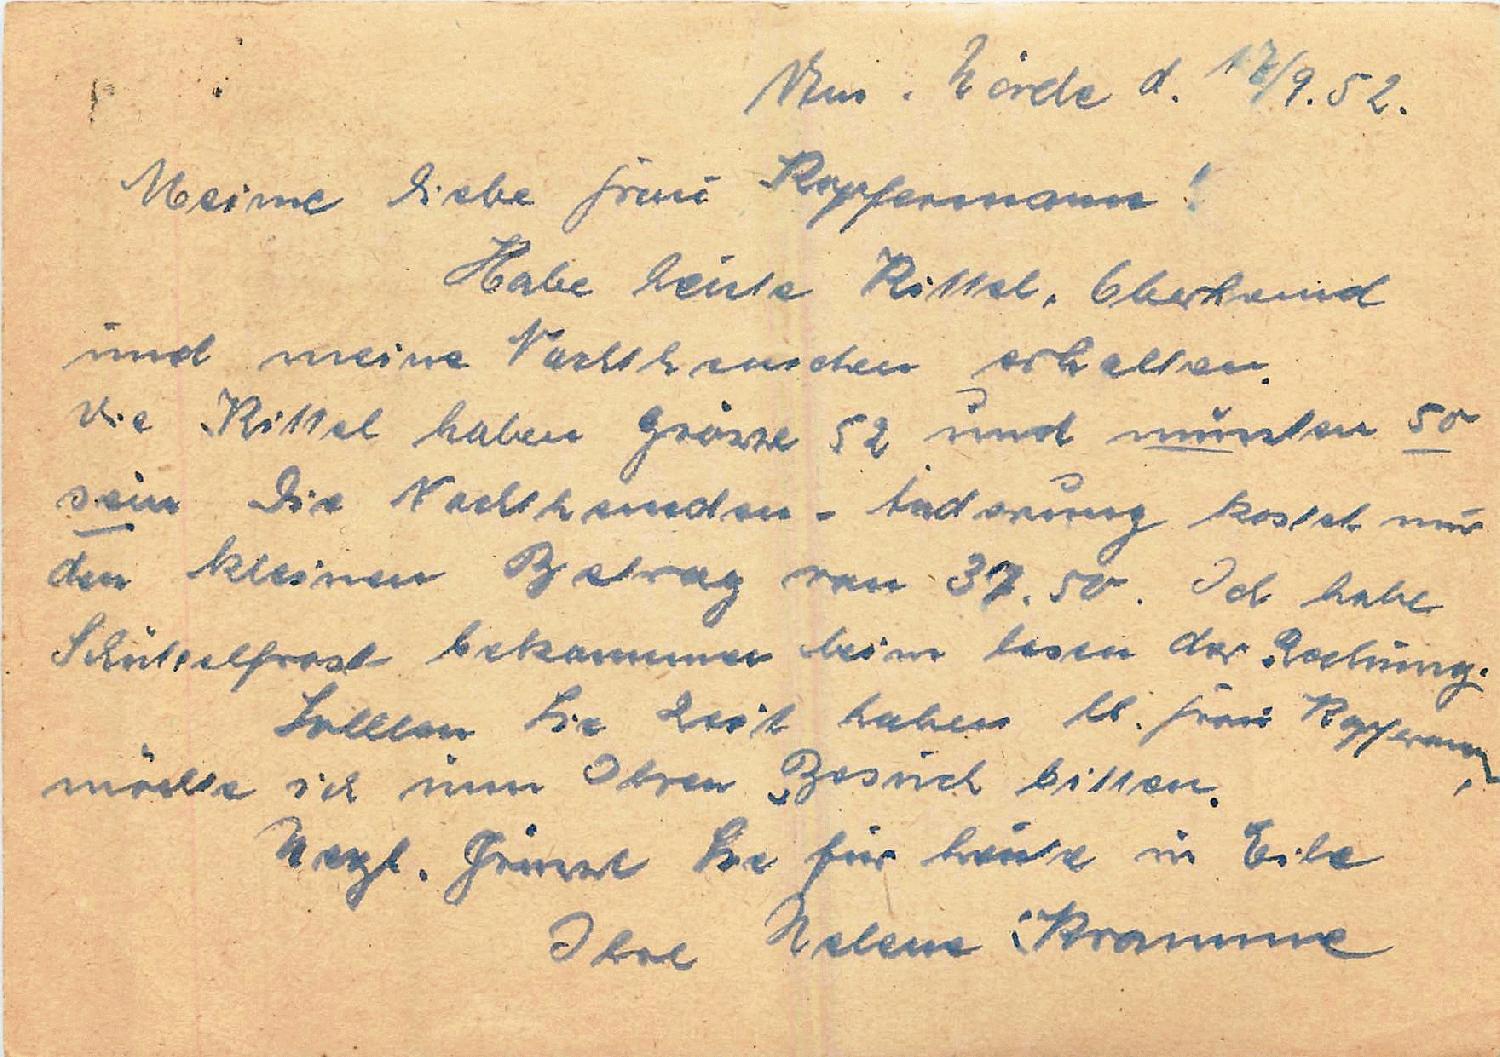 Dtm. Hörde d. 17/9.52.
Meine liebe Frau Kopfermann!
Habe heute Kittel, Oberhemd
und meine Nachthemden erhalten.
Die Kittel haben Grösse 52 und müssten 50
sein Die Nachthemden - Änderung kostet nur
den kleinen Betrag von 37.50. Ich habe
Schüttelfrost bekommen beim lesen der Rechnung.
Sollten Sie Zeit haben lb. Frau Kopfermann,
möchte ich um Ihren Besuch bitten.
Herzl. Grüsst Sie für heute in Eile
Ihre Helene Kramme